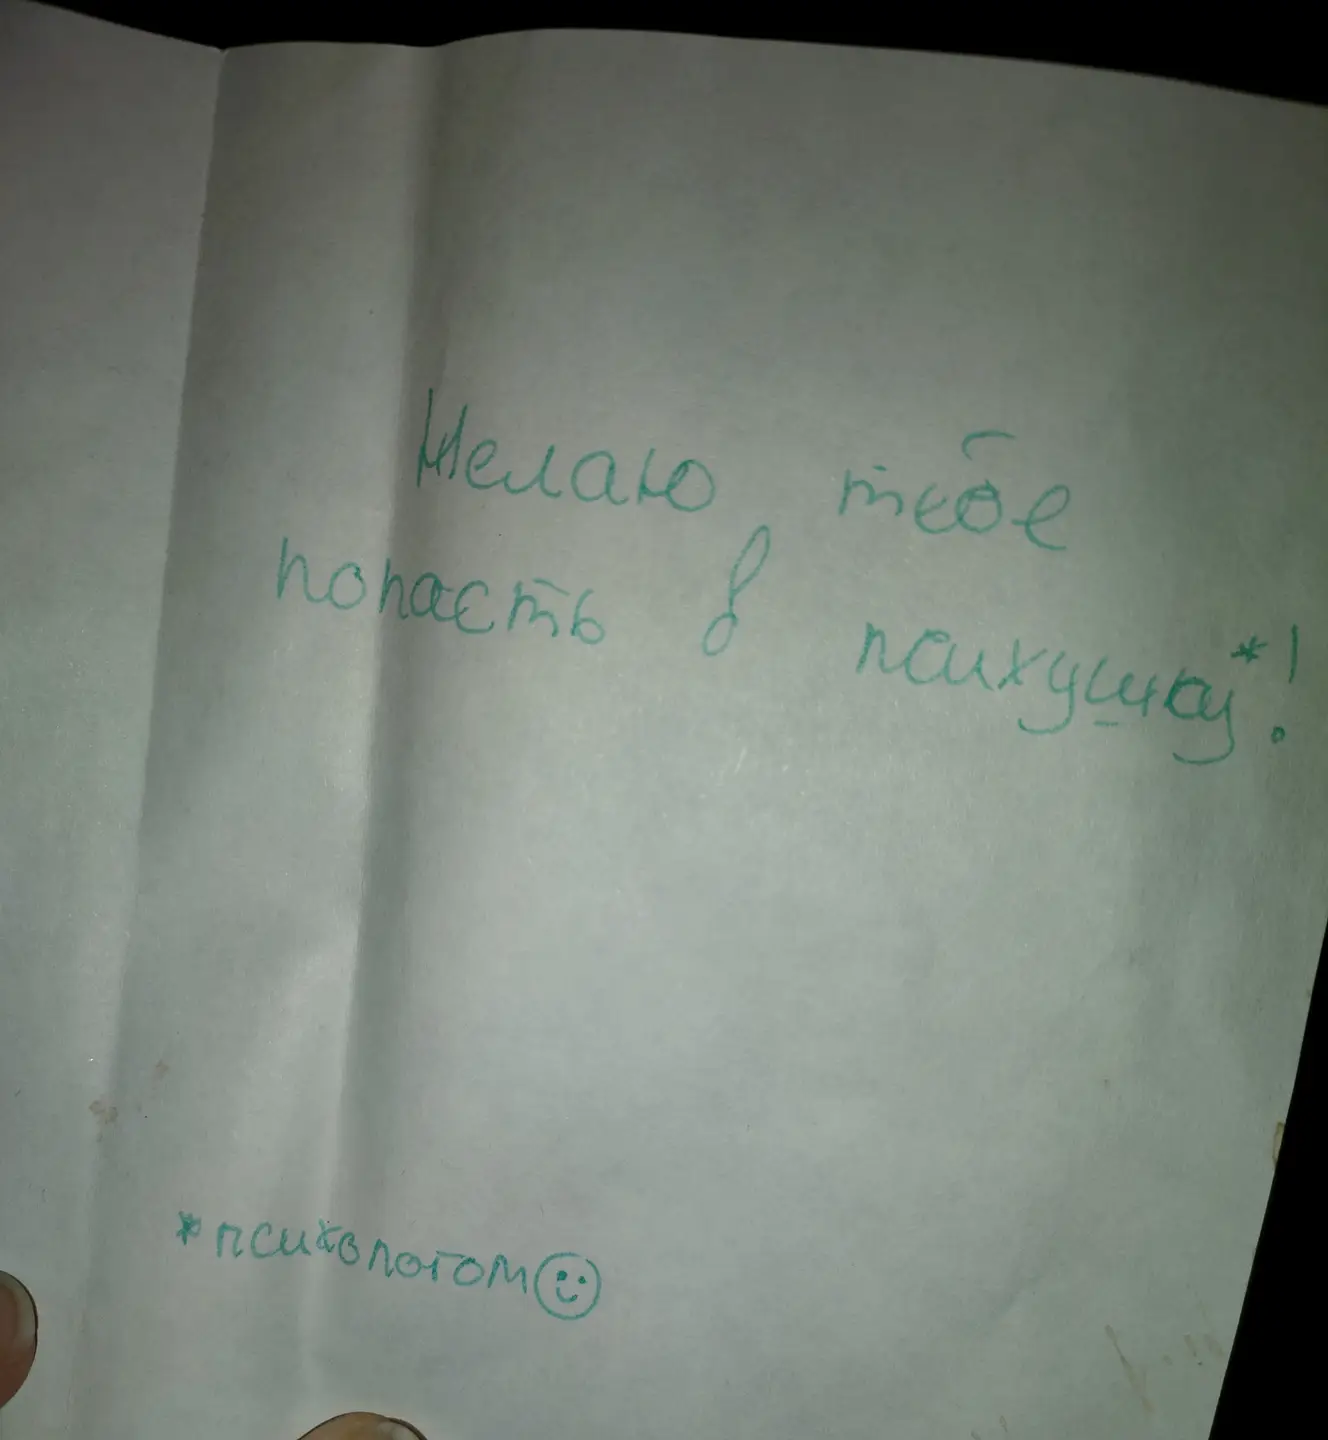 Желаю тебе
попасть в психушку*!
*психологом